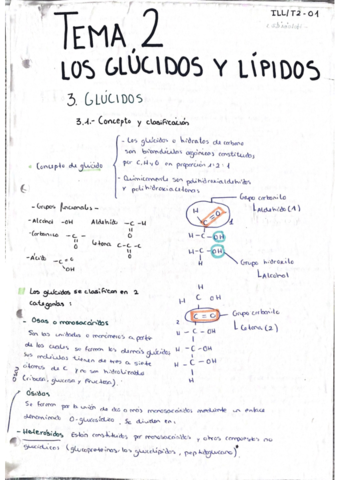 ILL/T2-01
TEMA 2
LOS GLÚCIDOS Y LÍPIDOS
3. GLÚCIDOS
3.1.- Concepto y clasificación
- Concepto de glúcido
- Los glúcidos o hidratos de carbono
son biomoléculas orgánicas constituidas
por C, H y O en proporción 1:2:1
- Químicamente son polihidroxialdehídos
y polihidroxiacetonas
- Grupos funcionales -
- Alcohol -OH Aldehído -C-H
- Carbonilo -C- Cetona C-C-C
O
- Ácido -C=O
OH
Grupo carbonilo
Aldehído (1)
H C=O
H-C-OH
H-C-OH
H
Grupo hidroxilo
Alcohol
Los glúcidos se clasifican en 2
categorías:
- Osas o monosacáridos
Son las unidades o monómeros a partir
de los cuales se forman los demás glúcidos
Sus moléculas tienen de tres a siete
átomos de C y no son hidrolizables
(ribosa, glucosa, fructosa).
H
H C OH
2 C=O
H-C-OH
H-C-OH
H-C-OH
H
Grupo carbonilo
Cetona (2)
Ósidos
Se forman por la unión de dos o más monosacáridos mediante un enlace
denominado O-glucosídico. Se dividen en:
- Heterósidos Están constituidos por monosacáridos y otros compuestos no
glucídicos (glucoproteínas, los glucolípidos, peptidoglucano).